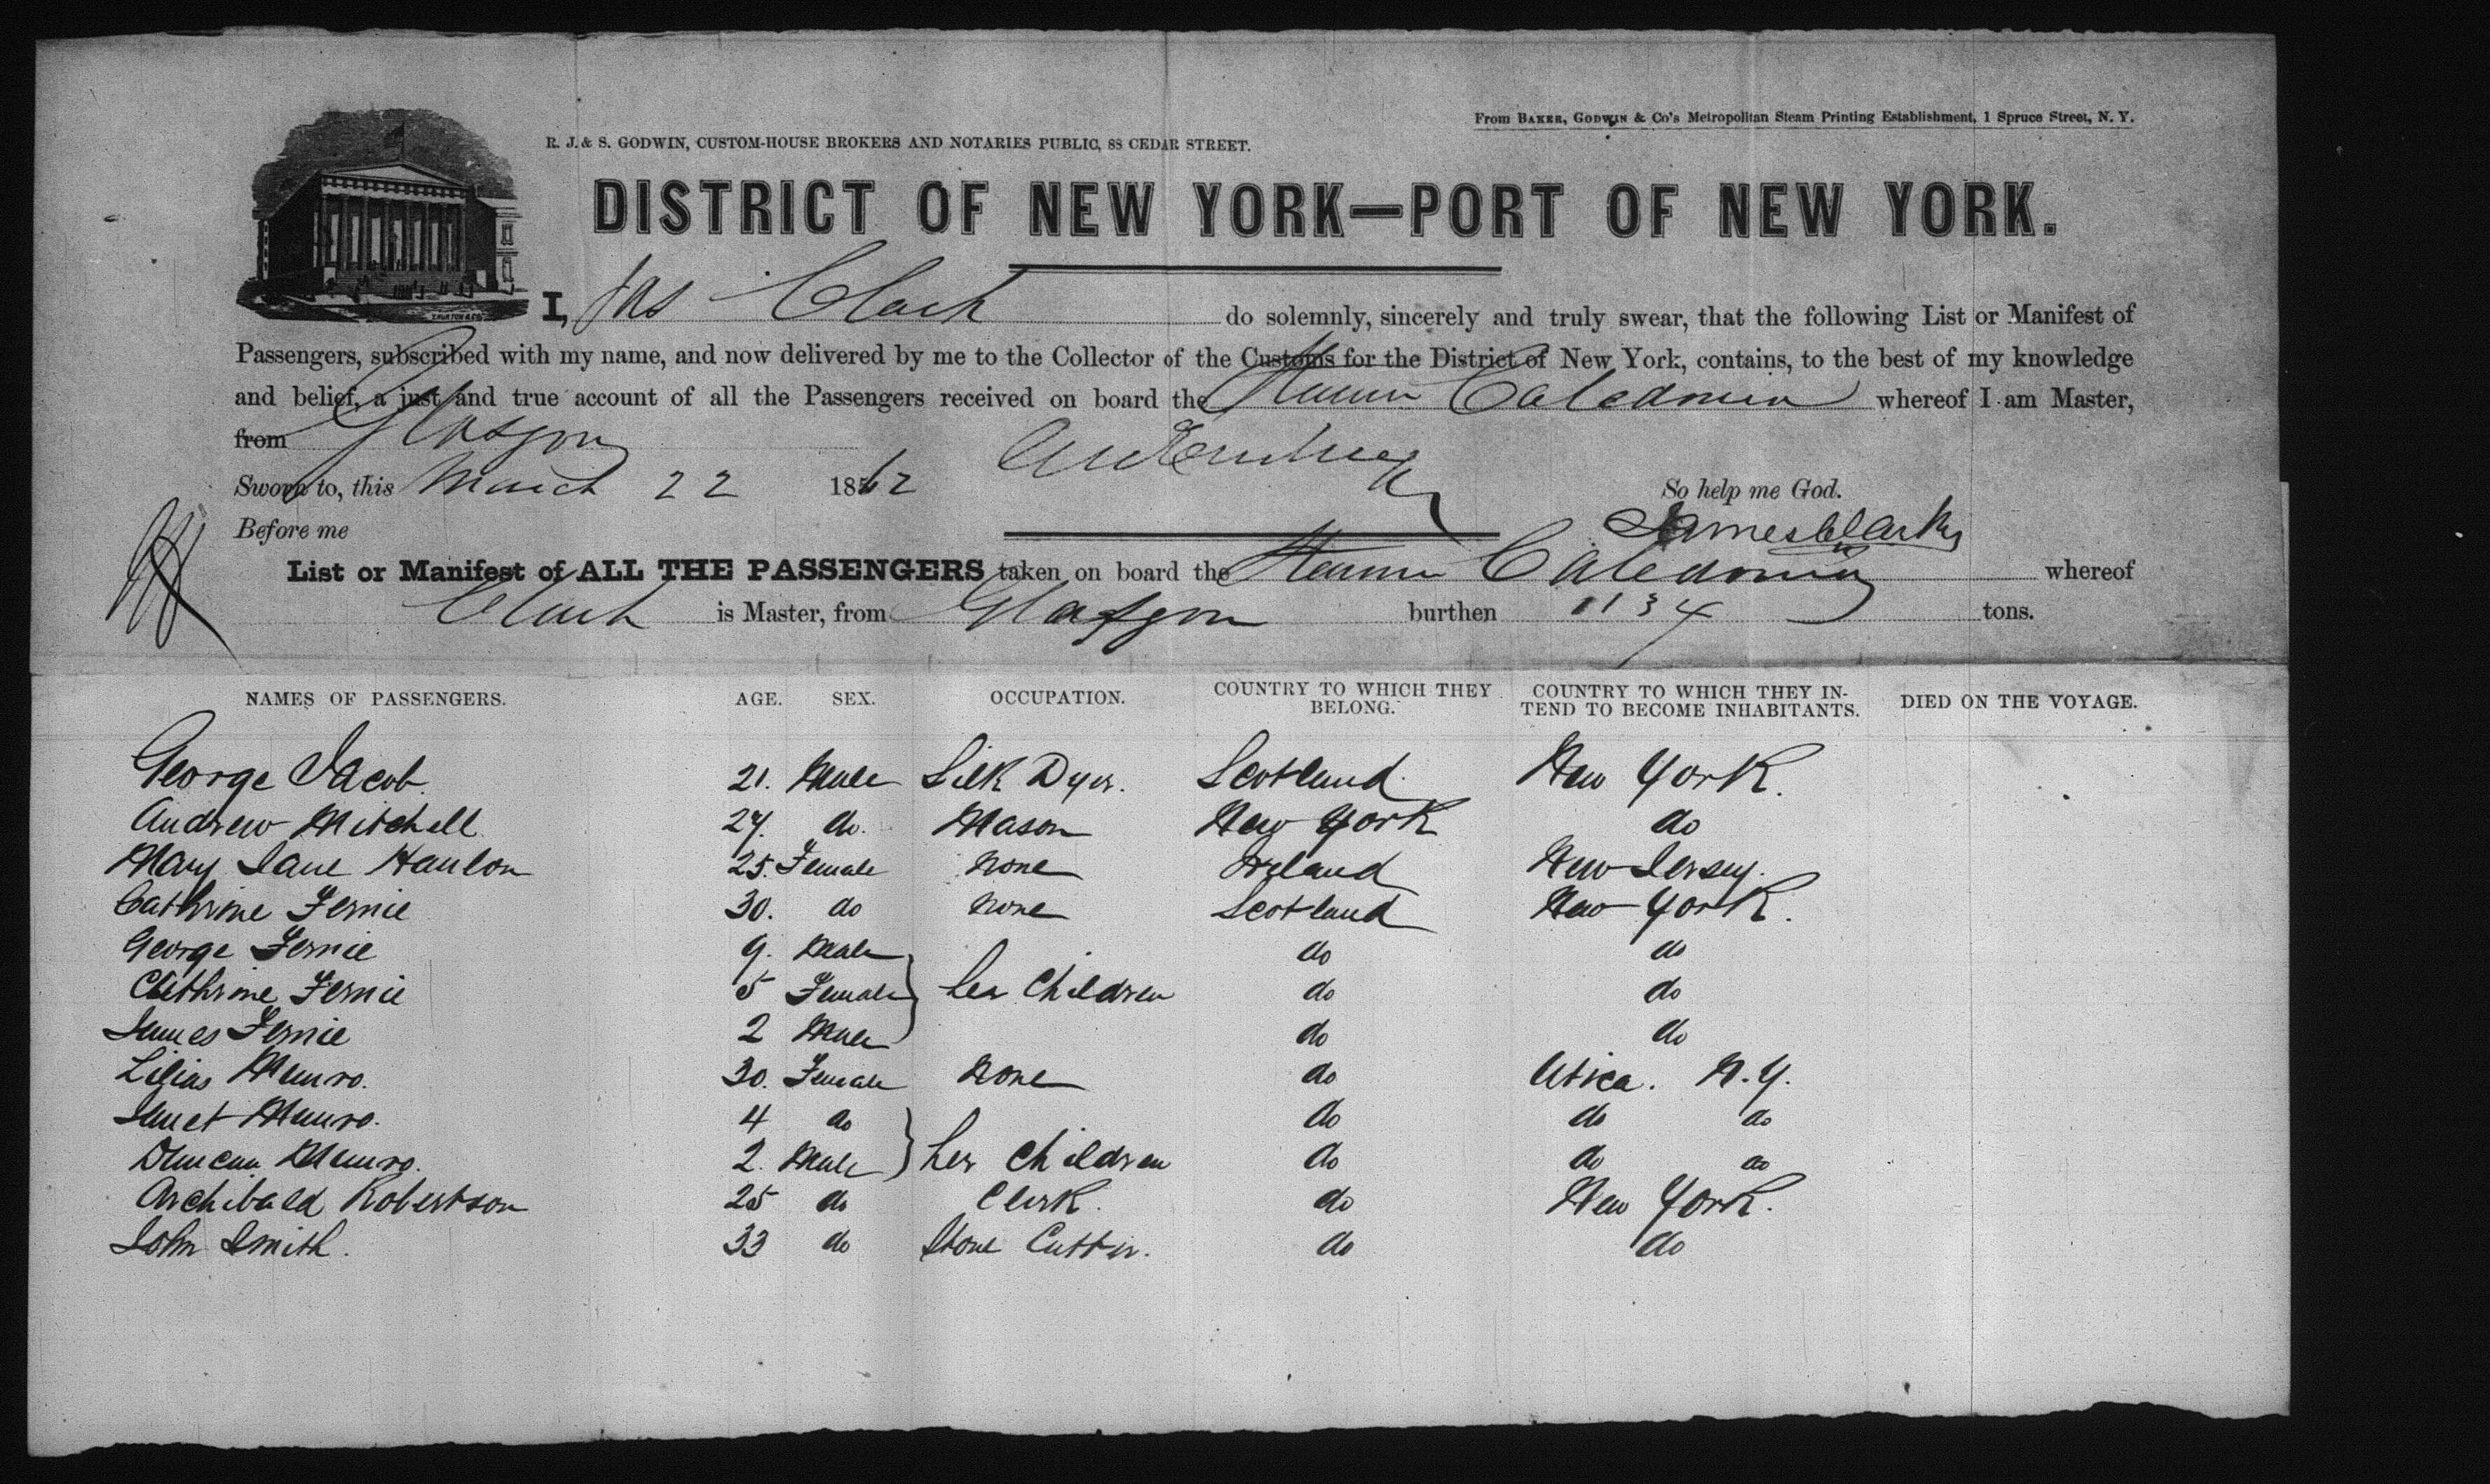 From BAKER, GODWIN & Co's Metropolitan Steam Printing Establishment, 1 Spruce Street, N. Y.
R. J. & S. GODWIN, CUSTOM-HOUSE BROKERS AND NOTARIES PUBLIC, 88 CEDAR STREET.
DISTRICT OF NEW YORK—PORT OF NEW YORK.
I, Jas Clark do solemnly, sincerely and truly swear, that the following List or Manifest of
Passengers, subscribed with my name, and now delivered by me to the Collector of the Customs for the District of New York, contains, to the best of my knowledge
and belief, a just and true account of all the Passengers received on board the Steamer Caledonia whereof I am Master,
from Glasgow
Sworn to, this March 22 1862 So help me God.
Before me James Clark
List or Manifest of ALL THE PASSENGERS taken on board the Steamer Caledonia whereof
Clark is Master, from Glasgow burthen 1134 tons.
NAMES OF PASSENGERS. AGE. SEX. OCCUPATION. COUNTRY TO WHICH THEY BELONG. COUNTRY TO WHICH THEY INTEND TO BECOME INHABITANTS. DIED ON THE VOYAGE.
George Jacob. 21. Male Silk Dyer. Scotland. New York.
Andrew Mitchell 27. do. Mason New York do
Mary Jane Hanlon 25. Female None Ireland New Jersey.
Cathrine Fernie 30. do None Scotland New York.
George Fernie 9. Male do do
Cathrine Fernie 5 Female her Children do do
James Fernie 2 Male do do
Lilias Munro. 30. Female None do Utica. N.Y.
Janet Munro. 4 do do do do
Duncan Munro. 2. Male her Children do do do
Archibald Robertson 25 do Clerk. do New York.
John Smith. 33 do Stone Cutter. do do